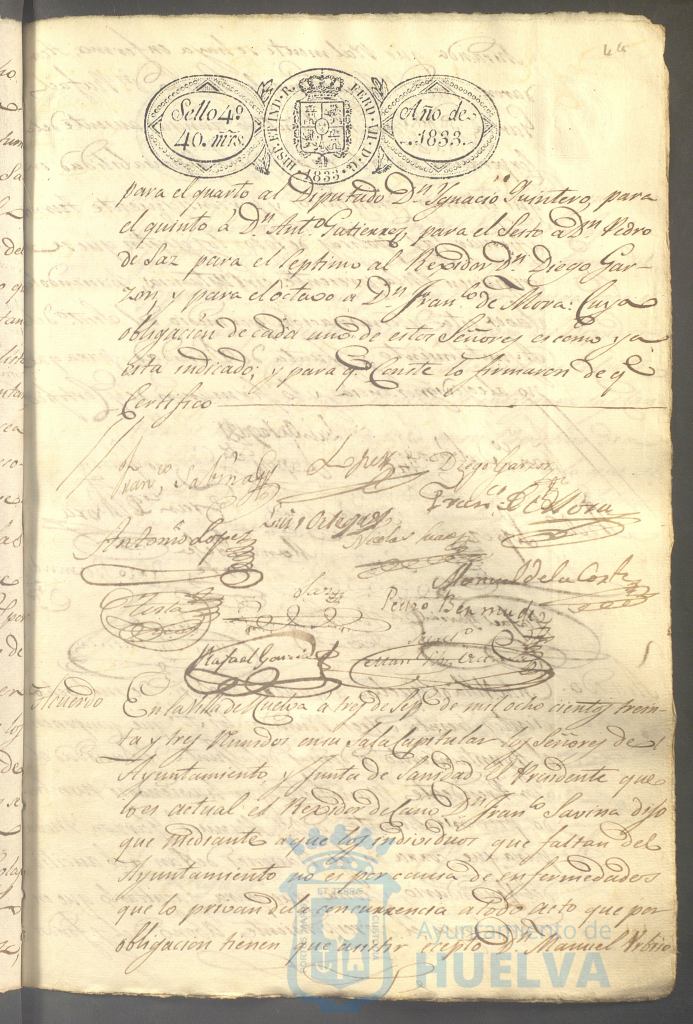 44
Sello 4º
40. mrs.
HISP. ET IND. R. FERD. VII. D. G.
.1833.
Año de
.1833.
para el quarto al Diputado Dn. Ygnacio Quintero, para
el quinto á Dn. Anto. Gutierrez, para el Sesto a Dn. Pedro
de Saz para el septimo al Rexidor Dn. Diego Gar-
zon, y para el octavo á Dn. Franco. de Mora: Cuya
obligacion de cada uno de estos Señores es como ya
esta indicado; y para qe. Conste lo firmaron de qe.
Certifico
Franco. Sabina
Lopez
Diego Garzon
Franco. De Mora
Antonio Lopez
Luis Ortega
Nicolas
Manuel de la Corte
Pedro Bermudez
Saz
Rafael Garcia
Acuerdo
En la Villa de Huelva a tres de Sepe. de mil ocho cientos trein-
ta y tres Reunidos en su Sala Capitular los Señores del
Ayuntamiento y Junta de Sanidad el Presidente que
lo es actual el Rexidor decano Dn. Franco. Savina dijo
que mediante a que los individuos que faltan del
Ayuntamiento no es por causa de enfermedades
que lo privan de la concurrencia a todo acto que por
obligacion tienen que asistir ecepto Dn. Manuel
Ayuntamiento de
HUELVA